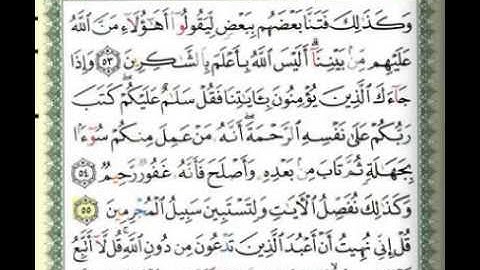 وَكَذَٰلِكَ فَتَنَّا بَعْضَهُم بِبَعْضٍ لِّيَقُولُوٓا۟ أَهَـٰٓؤُلَآءِ مَنَّ ٱللَّهُ
عَلَيْهِم مِّنۢ بَيْنِنَآ ۗ أَلَيْسَ ٱللَّهُ بِأَعْلَمَ بِٱلشَّـٰكِرِينَ ٥٣ وَإِذَا
جَآءَكَ ٱلَّذِينَ يُؤْمِنُونَ بِـَٔايَـٰتِنَا فَقُلْ سَلَـٰمٌ عَلَيْكُمْ ۖ كَتَبَ
رَبُّكُمْ عَلَىٰ نَفْسِهِ ٱلرَّحْمَةَ ۖ أَنَّهُۥ مَنْ عَمِلَ مِنكُمْ سُوٓءًۢا
بِجَهَـٰلَةٍ ثُمَّ تَابَ مِنۢ بَعْدِهِۦ وَأَصْلَحَ فَأَنَّهُۥ غَفُورٌ رَّحِيمٌ ٥٤
وَكَذَٰلِكَ نُفَصِّلُ ٱلْـَٔايَـٰتِ وَلِتَسْتَبِينَ سَبِيلُ ٱلْمُجْرِمِينَ ٥٥
قُلْ إِنِّى نُهِيتُ أَنْ أَعْبُدَ ٱلَّذِينَ تَدْعُونَ مِن دُونِ ٱللَّهِ ۚ قُل لَّآ أَتَّبِعُ